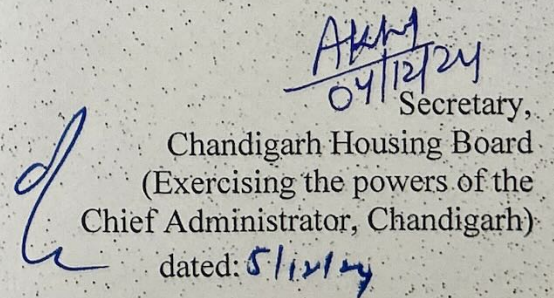 04/12/24
Secretary,
Chandigarh Housing Board
(Exercising the powers of the
Chief Administrator, Chandigarh)
dated: 5/12/24